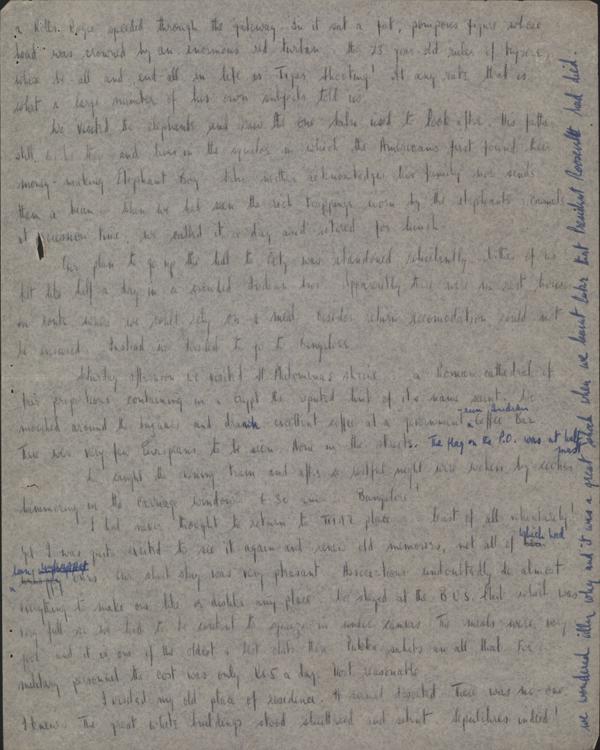 a Rolls Royce speeded through the gateway. In it sat a fat, pompous figure whose
head was crowned by an enormous red turban. the 25 year-old ruler of Mysore,
whose be all and end all in life is Tiger Shooting! At any rate that is
what a large number of his own subjects told us.
We visited the elephants and saw the one Sabu used to look after. His father
still and lives in the squalor in which the Americans first found their
money-making Elephant Boy. Sabu neither acknowledges his family nor sends
them a bean. When we had seen the rich trappings worn by the elephants camels
at procession time, we called it a day and retired for lunch.
Our plan to go up the hill to Ooty was abandoned reluctantly. Neither of us
felt like half a day in a crowded Indian bus. Apparently there were no rest houses
en route where we could rely on a meal. Besides return accomodation could not
be ensured. Instead we decided to go to Bangalore.
Saturday afternoon we visited St Philomena's shrine - a Roman cathedral of
fair proportions containing in a crypt the reputed hand of its name saint. We
mooched around the bazaars and drank excellent coffee at a prominent Coffee Bar.
There were very few Europeans to be seen. None in the streets. The flag on the P.O. was at half
mast
We caught the evening train and after a restful night were woken by coolies
hammering on the carriage windows. 6-30 am - Bangalore!
I had never thought to return to THAT place - least of all voluntarily!
Yet I was quite excited to see it again and renew old memories, not all of which had
been unhappy ones. Our short stay was very pleasant. Associations undoubtedly do almost
everything to make one like or dislike any place. We stayed at the B.U.S. Club which was
very full so we had to be content to squeeze in under canvas. The meals were very
good and it is one of the oldest & best clubs there. Public rooms an all that. For
military personnel the cost was only Rs 5 a day. Most reasonable.
I visited my old place of residence. It seemed deserted. There was no-one
I knew. The great white buildings stood shuttered and silent. Sepulchres indeed!
we wondered why and it was a great shock when we learnt later that President Roosevelt had died.